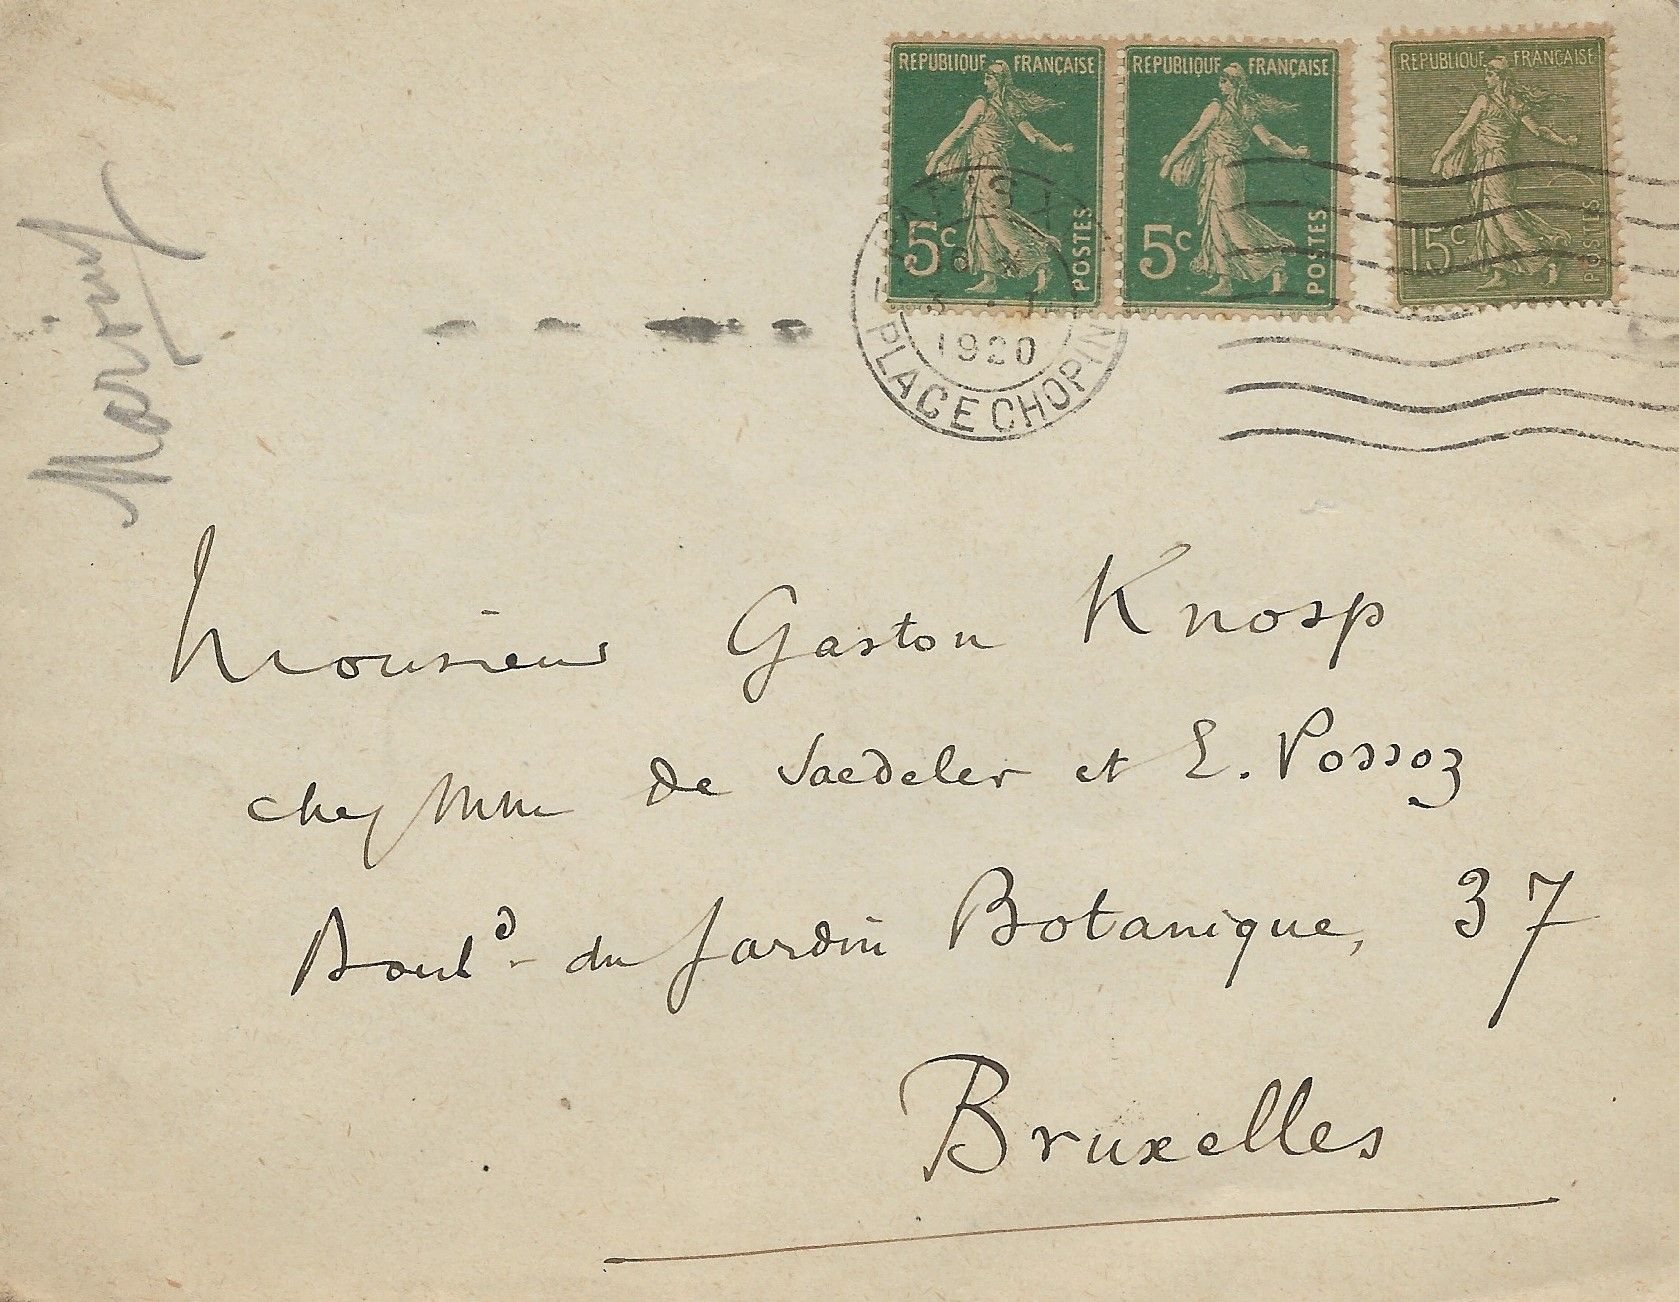 REPUBLIQUE FRANÇAISE
5c POSTES
REPUBLIQUE FRANÇAISE
5c POSTES
REPUBLIQUE FRANÇAISE
15c POSTES
PARIS
1920
PLACE CHOPIN
Monsieur Gaston Knosp
chez Mme de Saedeler et E. Possoz
Boulᵈ du Jardin Botanique, 37
Bruxelles